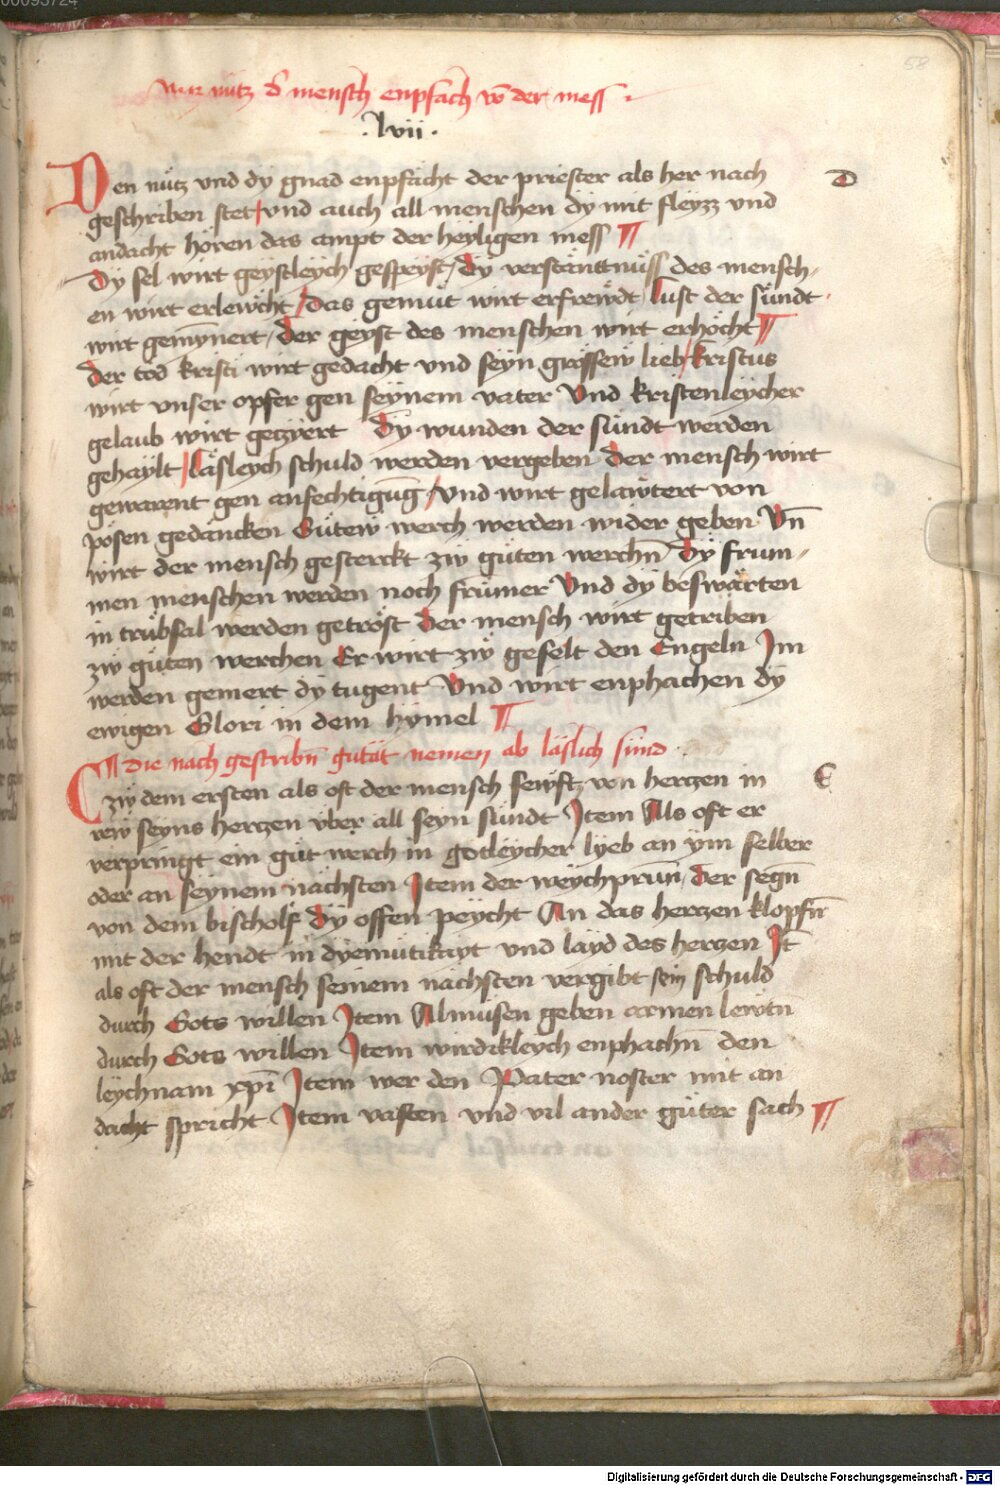 00093724
58
Waz nütz d mensch enpfach vō der mess
.lvii.
Den nütz vnd dy gnad enpfächt der priester als her nach
D
geschriben stet / vnd auch all menschen dy mit fleyzz vnd
andacht hören das ampt der heyligen mess
Dy sel wirt geystleych gespeyst / dy verstänttnüss des mensch
en wirt erlewcht / das gemüt wirt erfrewdt lust der sündt
wirt gemynnert / der geyst des menschen wirt erhöcht
der tod kristi wirt gedacht vnd seyn grössew lieb / kristus
wirt vnser opfer gen seynem vater Vnd kristenleycher
gelaub wirt geczyert Dy wunden der sündt werden
gehaylt / läsleych schuld werden vergeben Der mensch wirt
gewarent gen anfechtigūg / vnd wirt gelawtert von
pösen gedäncken Gütew werch werden wider geben Vn̄
wirt der mensch gesterckt zw güten werchn̄ Dy frum
men menschen werden noch frümer Vnd dy beswärten
in trübsal werden getröst Der mensch wirt getriben
zw güten werchen Er wirt zw geselt den Engeln Im
werden gemert dy tugent Vnd wirt enphachen dy
ewigen Glori in dem hymel
Die nach gestribn̄ gutät nemen ab läslich sünd
Czw dem ersten als oft der mensch sewftz von herczen in
E
rew seyns herczen vber all seyn sündt Item Als oft er
verpringt ein güt werch in gotleycher lyeb an ym selber
oder an seynem nächsten Item der weychprun̄ Der segn̄
von dem bischolf Dy offen peycht An das herczen klopfn̄
mit der hendt in dyemütikayt vnd layd des herczen It̄
als oft der mensch seinem nächsten vergibt sein schuld
durch Gots willen Item Almüsen geben armen lewtn̄
durch Gots willen Item wirdikleych enphachn̄ den
leychnam xpī Item wer den Pater noster mit an
dacht spricht Item vasten vnd vil ander güter sach
Digitalisierung gefördert durch die Deutsche Forschungsgemeinschaft - DFG